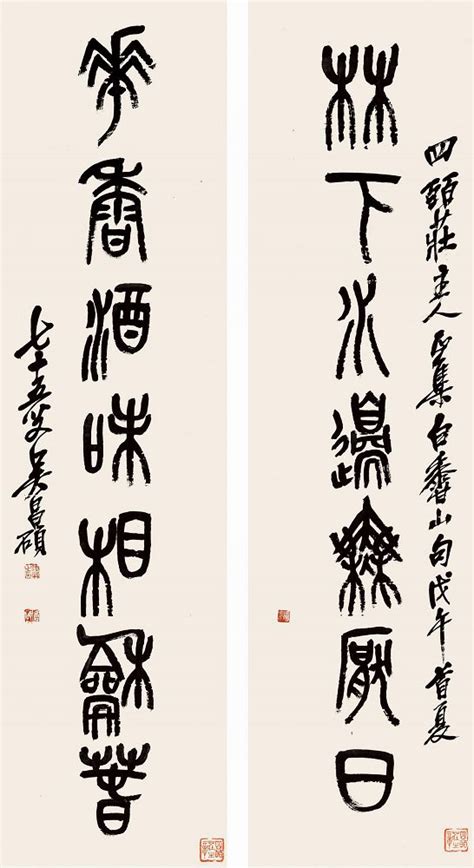 四頤莊主人正集白香山句戊午首夏
林下水邊無厭日
華香酒味相龢旹
七十五叟吳昌碩